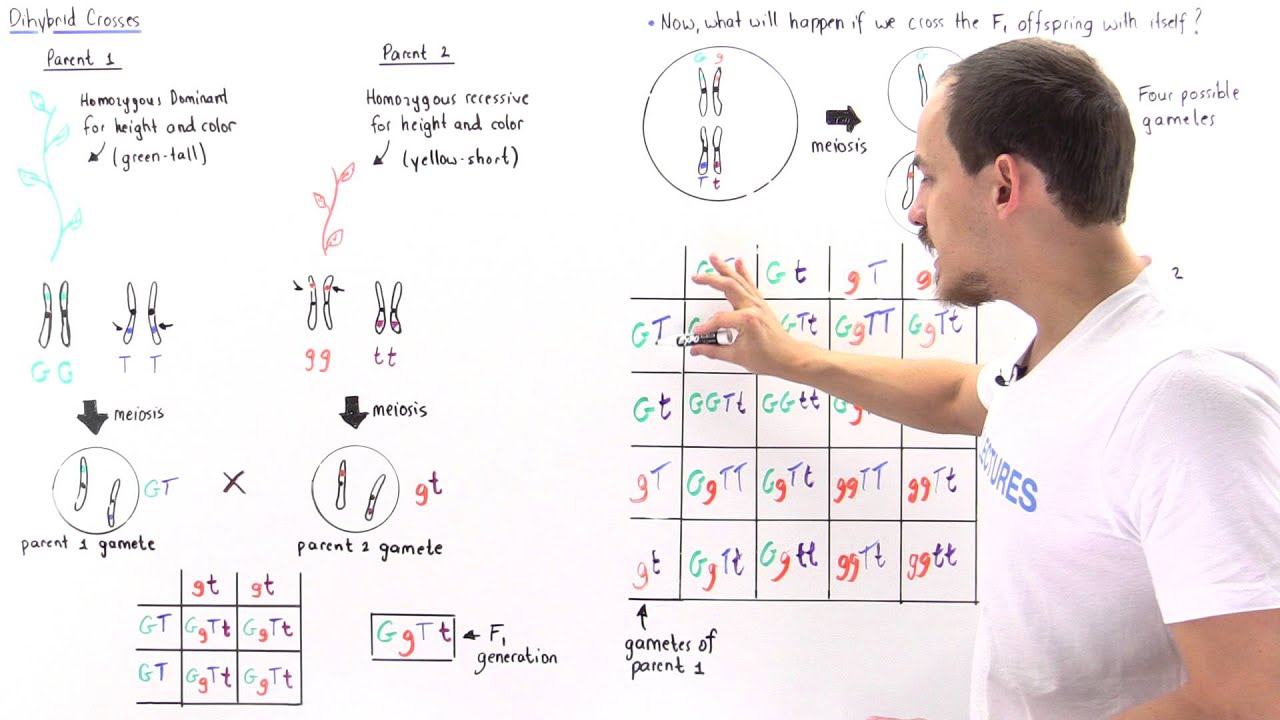 Dihybrid Crosses
Parent 1
Parent 2
Homozygous Dominant
for height and color
(green-tall)
Homozygous recessive
for height and color
(yellow-short)
G G
T T
gg
tt
meiosis
meiosis
GT
X
gt
parent 1 gamete
parent 2 gamete
gt gt
GT GgTt GgTt
GT GgTt GgTt
GgTt
F₁
generation
• Now, what will happen if we cross the F₁ offspring with itself?
G g
T t
meiosis
G
Four possible
gametes
Gt gT g
2
GT GTt GgTT GgTt
Gt GGTt GGtt
gT GgTT GgTt ggTT ggTt
gt GgTt Ggtt ggTt ggtt
gametes of
parent 1
CTURES